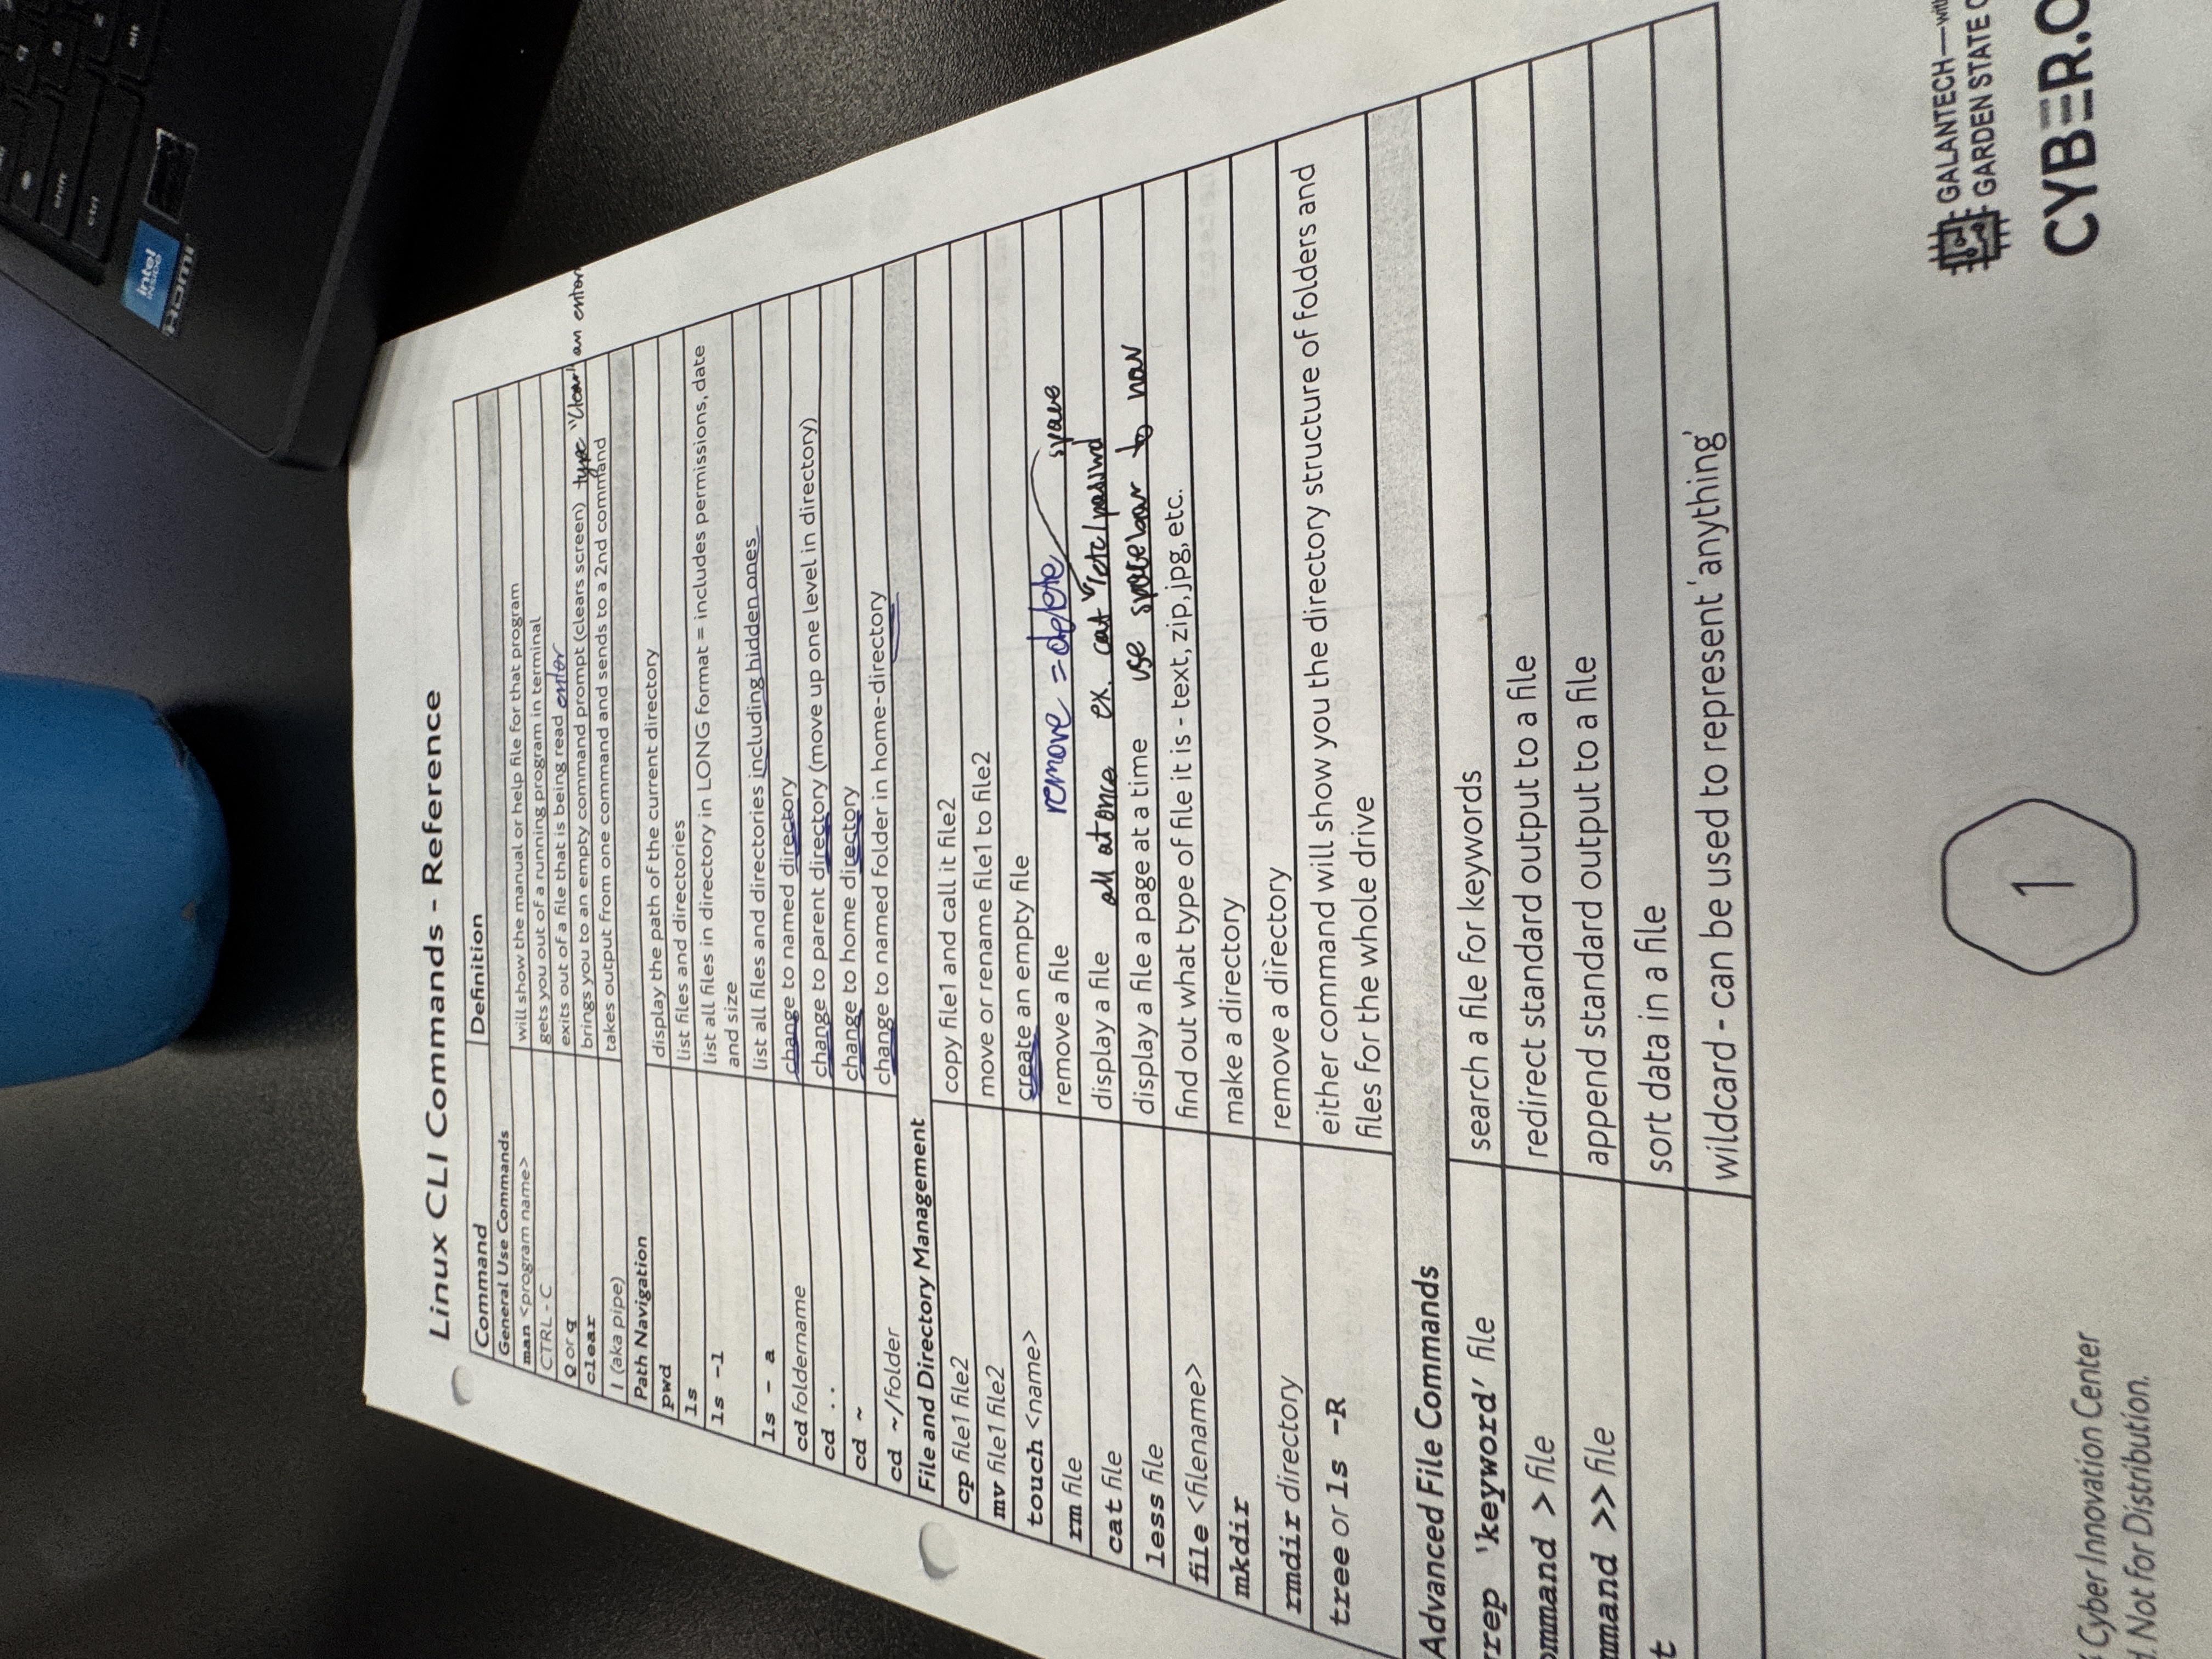 Linux CLI Commands - Reference
Command Definition
General Use Commands
man <program name> will show the manual or help file for that program
CTRL - C gets you out of a running program in terminal
Q or q exits out of a file that is being read enter
clear brings you to an empty command prompt (clears screen) type "clear" an enter
| (aka pipe) takes output from one command and sends to a 2nd command
Path Navigation
pwd display the path of the current directory
ls list files and directories
ls -l list all files in directory in LONG format = includes permissions, date
and size
ls - a list all files and directories including hidden ones
cd foldername change to named directory
cd .. change to parent directory (move up one level in directory)
cd ~ change to home directory
cd ~/folder change to named folder in home-directory
File and Directory Management
cp file1 file2 copy file1 and call it file2
mv file1 file2 move or rename file1 to file2
touch <name> create an empty file
rm file remove a file remove = delete
cat file display a file all at once ex. cat /etc/passwd
less file display a file a page at a time use spacebar to nav
file <filename> find out what type of file it is - text, zip, jpg, etc.
mkdir make a directory
rmdir directory remove a directory
tree or ls -R either command will show you the directory structure of folders and
files for the whole drive
Advanced File Commands
rep 'keyword' file search a file for keywords
ommand > file redirect standard output to a file
mmand >> file append standard output to a file
t sort data in a file
wildcard - can be used to represent 'anything'
1
Cyber Innovation Center
d. Not for Distribution.
GALANTECH—with
GARDEN STATE C
CYBER.O
intel
INSIDE
HDMI
shift
ctrl
alt